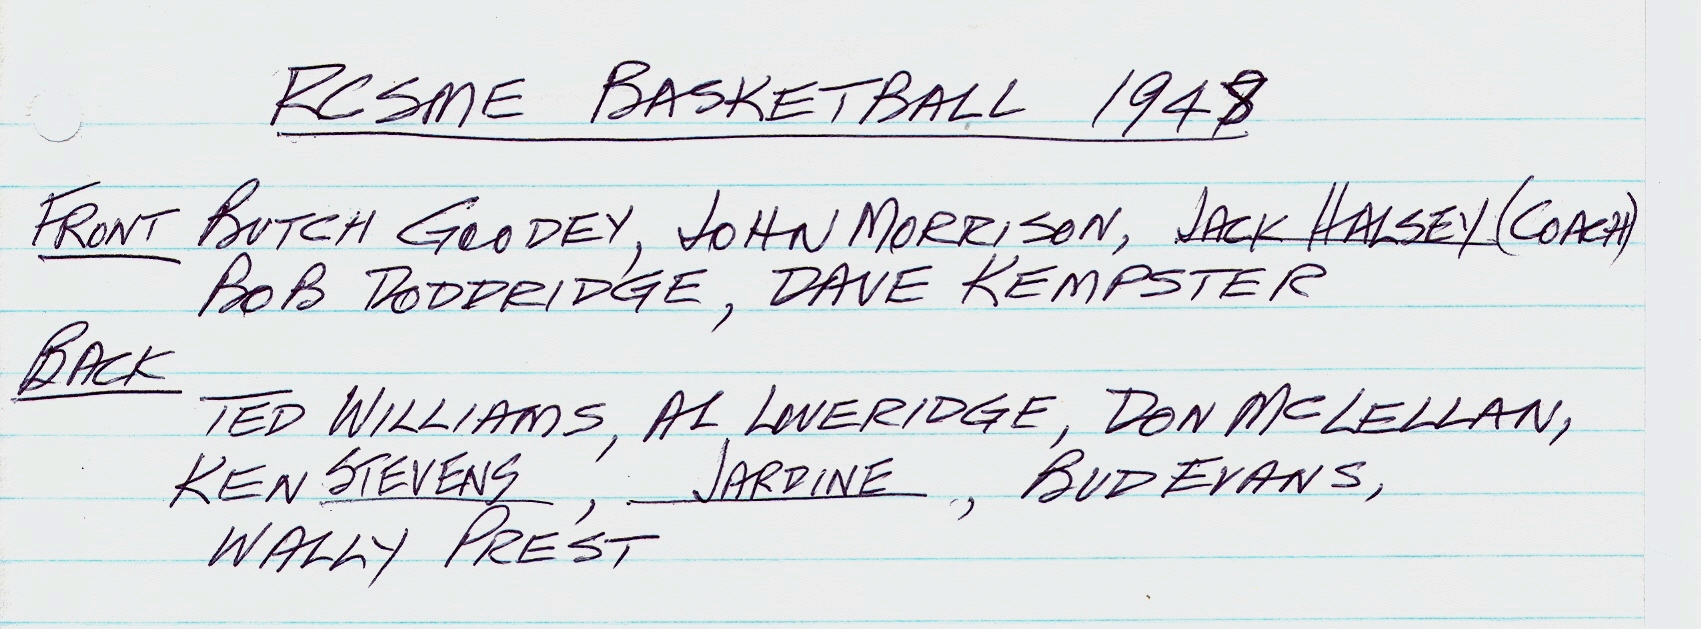 RCSME BASKETBALL 1948
FRONT BUTCH GOODEY, JOHN MORRISON, JACK HALSEY (COACH)
BOB DODDRIDGE, DAVE KEMPSTER
BACK
TED WILLIAMS, AL LOVERIDGE, DON MCLELLAN,
KEN STEVENS, JARDINE, BUD EVANS,
WALLY PREST